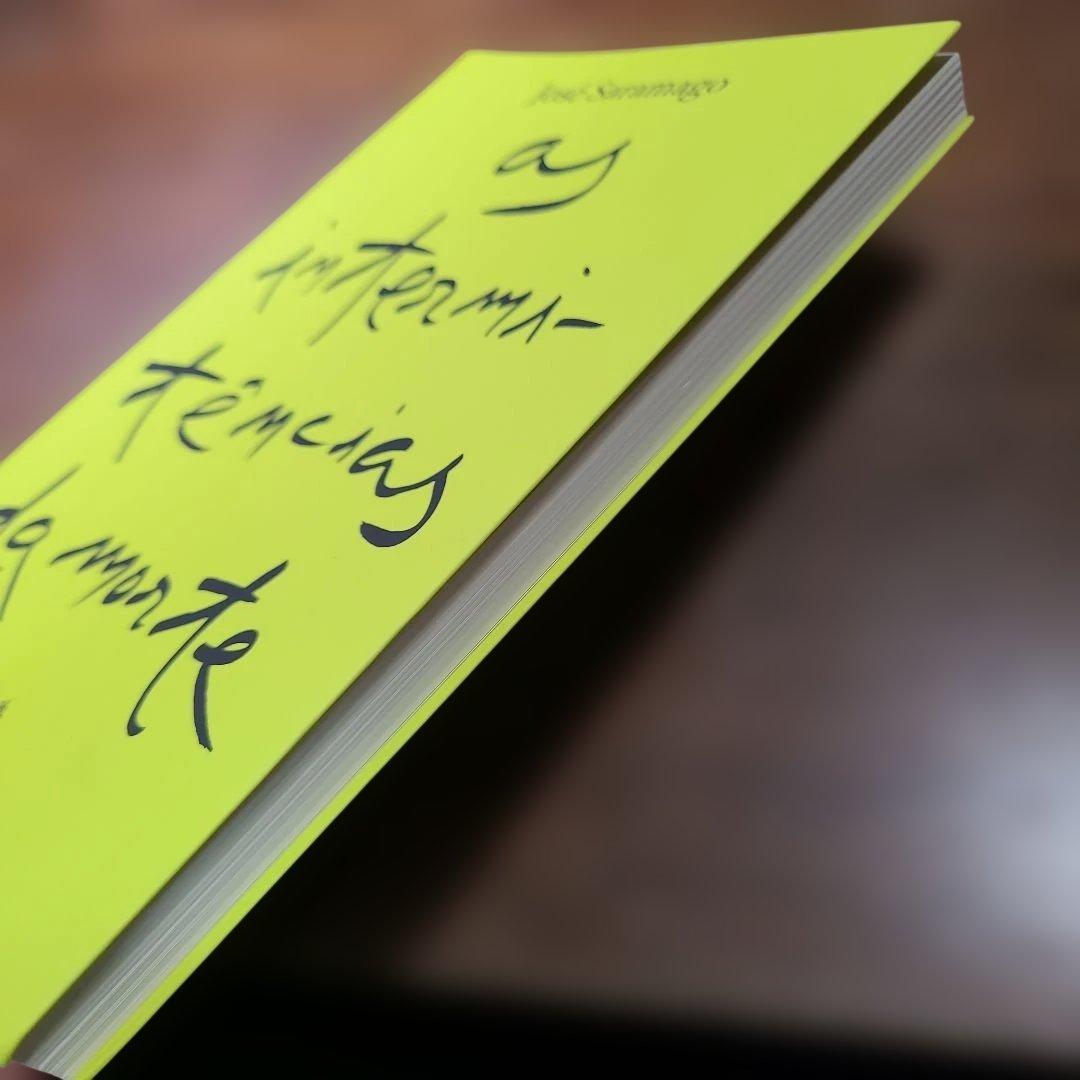 José Saramago
as
intermi-
tências
da morte